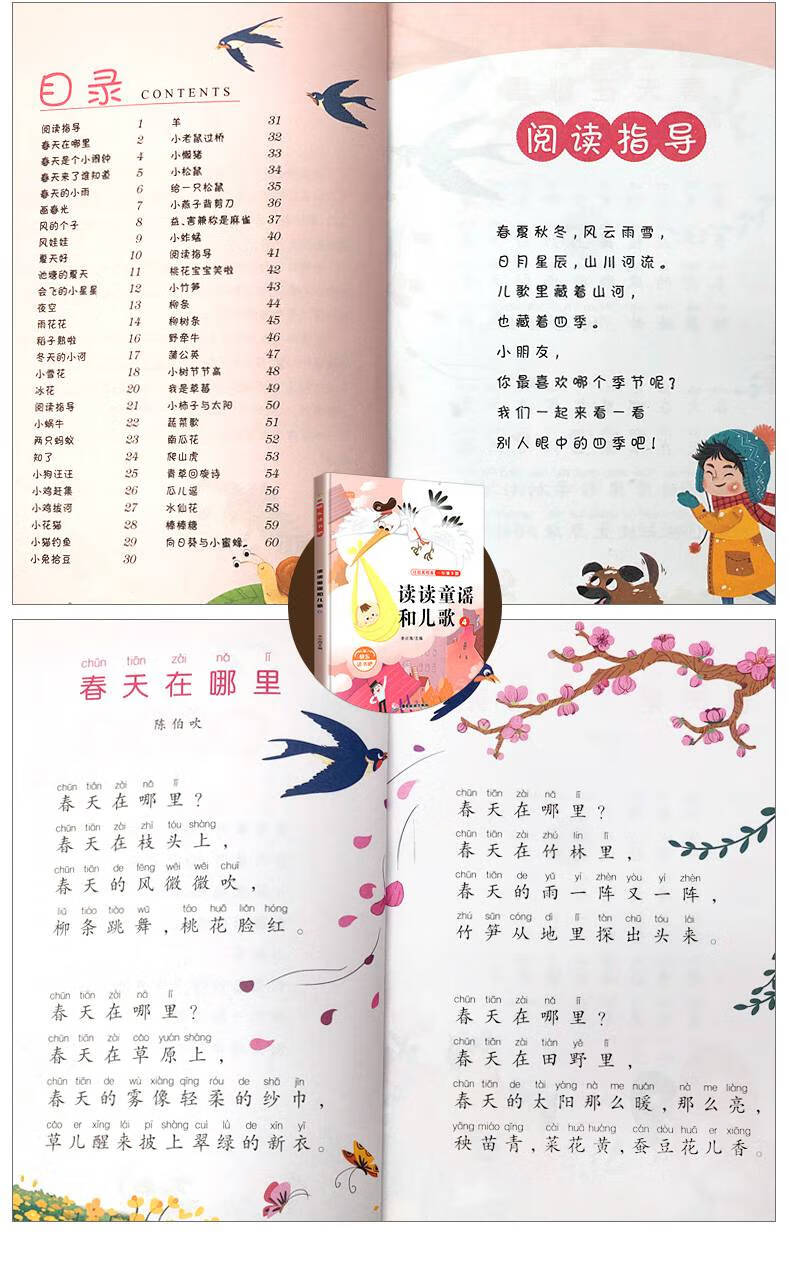 目录 CONTENTS
阅读指导 1
春天在哪里 2
春天是个小闹钟 4
春天来了谁知道 5
春天的小雨 6
画春光 7
风的个子 8
风娃娃 9
夏天好 10
池塘的夏天 11
会飞的小星星 12
夜空 13
雨花花 14
稻子熟啦 16
冬天的小河 17
小雪花 18
冰花 20
阅读指导 21
小蜗牛 22
两只蚂蚁 23
知了 24
小狗汪汪 25
小鸡赶集 26
小鸡拔河 27
小花猫 28
小猫钓鱼 29
小兔拾豆 30
羊 31
小老鼠过桥 32
小懒猪 33
小松鼠 34
给一只松鼠 35
小燕子背剪刀 36
益、害兼称是麻雀 37
小蚱蜢 40
阅读指导 41
桃花宝宝笑啦 42
小竹笋 43
柳条 44
柳树条 45
野牵牛 46
蒲公英 47
小树节节高 48
我是草莓 49
小柿子与太阳 50
蔬菜歌 51
南瓜花 52
爬山虎 53
青草回旋诗 54
瓜儿谣 56
水仙花 58
棒棒糖 59
向日葵与小蜜蜂 60
阅读指导
春夏秋冬，风云雨雪，
日月星辰，山川河流。
儿歌里藏着山河，
也藏着四季。
小朋友，
你最喜欢哪个季节呢？
我们一起来看一看
别人眼中的四季吧！
读读童谣
和儿歌 4
chūn tiān zài nǎ lǐ
春天在哪里
陈伯吹
chūn tiān zài nǎ lǐ
春天在哪里？
chūn tiān zài zhī tóu shàng
春天在枝头上，
chūn tiān de fēng wēi wēi chuī
春天的风微微吹，
liǔ tiáo tiào wǔ táo huā liǎn hóng
柳条跳舞，桃花脸红。
chūn tiān zài nǎ lǐ
春天在哪里？
chūn tiān zài cǎo yuán shàng
春天在草原上，
chūn tiān de wù xiàng qīng róu de shā jīn
春天的雾像轻柔的纱巾，
cǎo er xǐng lái pī shàng cuì lǜ de xīn yī
草儿醒来披上翠绿的新衣。
chūn tiān zài nǎ lǐ
春天在哪里？
chūn tiān zài zhú lín lǐ
春天在竹林里，
chūn tiān de yǔ yí zhèn yòu yí zhèn
春天的雨一阵又一阵，
zhú sǔn cóng dì lǐ tàn chū tóu lái
竹笋从地里探出头来。
chūn tiān zài nǎ lǐ
春天在哪里？
chūn tiān zài tián yě lǐ
春天在田野里，
chūn tiān de tài yáng nà me nuǎn nà me liàng
春天的太阳那么暖，那么亮，
yāng miáo qīng cài huā huáng cán dòu huā er xiāng
秧苗青，菜花黄，蚕豆花儿香。